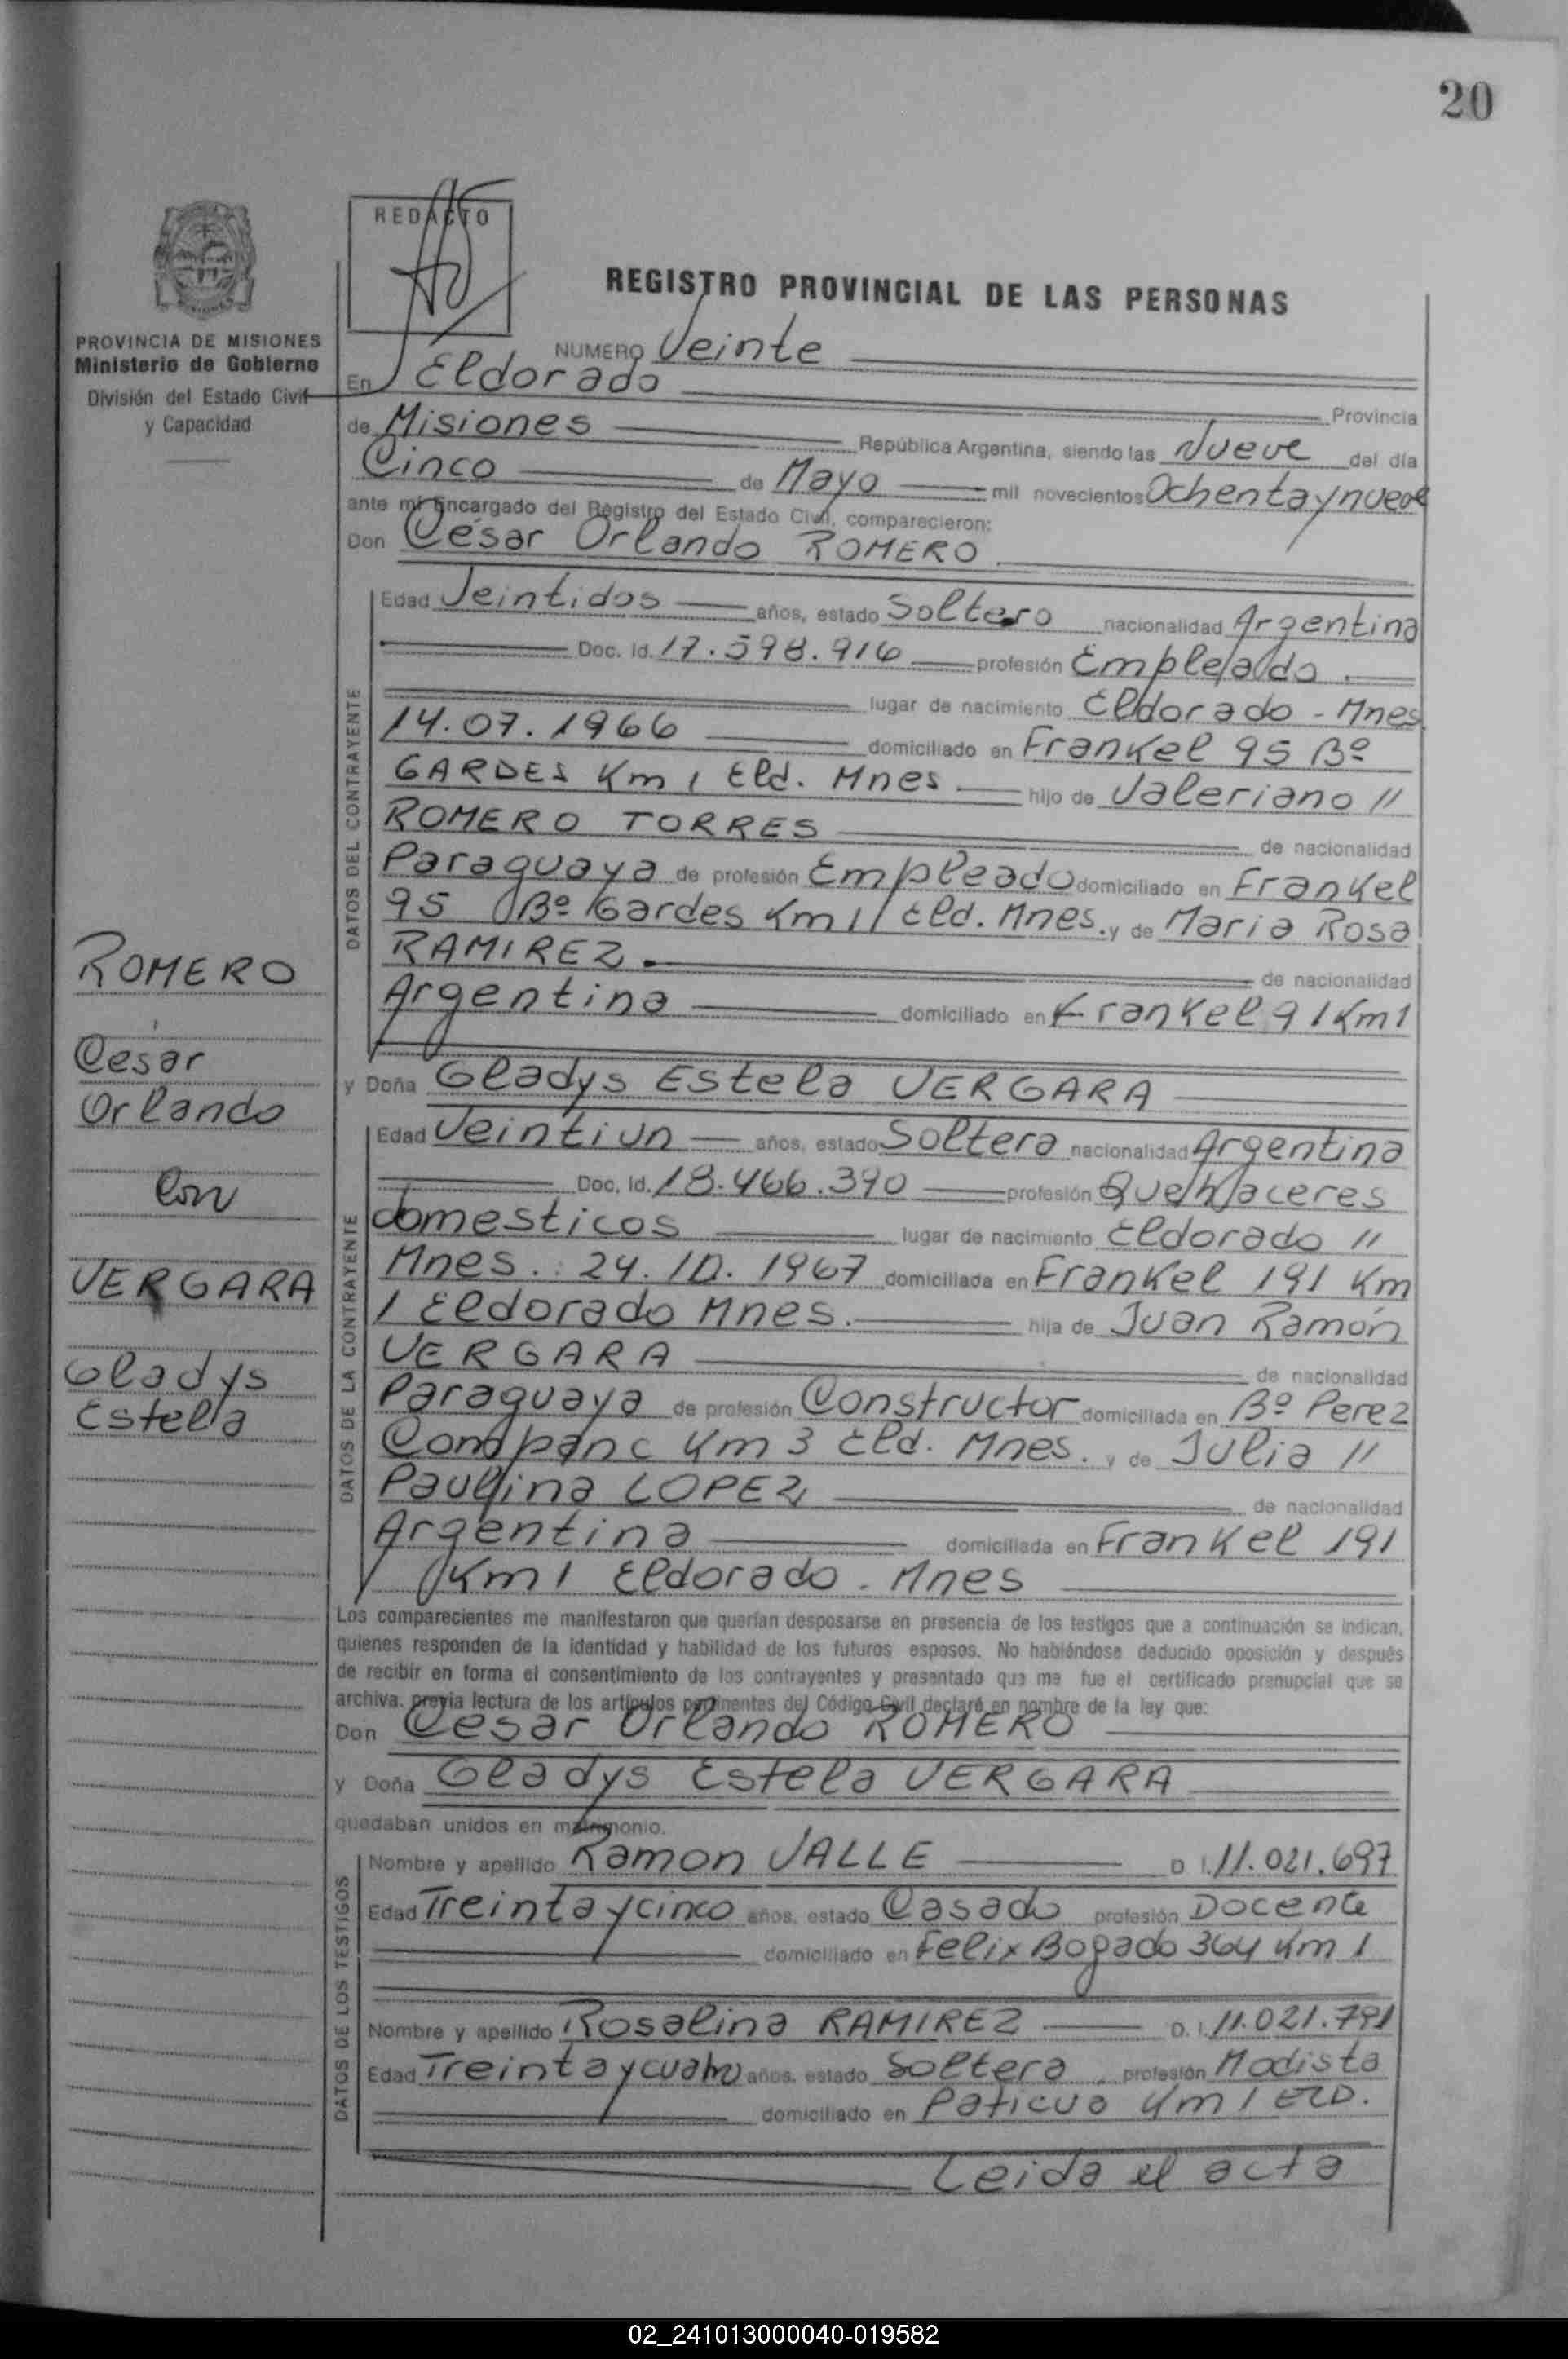 20
REDACTO
REGISTRO PROVINCIAL DE LAS PERSONAS
PROVINCIA DE MISIONES
Ministerio de Gobierno
División del Estado Civil
y Capacidad
NUMERO Veinte
En Eldorado
Provincia
de Misiones República Argentina, siendo las Nueve del día
Cinco de Mayo mil novecientos Ochenta y nueve
ante mí Encargado del Registro del Estado Civil, comparecieron:
Don César Orlando ROMERO
DATOS DEL CONTRAYENTE
Edad Veintidos años, estado Soltero nacionalidad Argentina
Doc. Id. 17.598.916 profesión Empleado.
lugar de nacimiento Eldorado - Mnes.
14.07.1966 domiciliado en Frankel 95 Bº
GARDES Km 1 Eld. Mnes hijo de Valeriano //
ROMERO TORRES de nacionalidad
Paraguaya de profesión Empleado domiciliado en Frankel
95 Bº Gardes Km 1 / Eld. Mnes. y de Maria Rosa
RAMIREZ. de nacionalidad
Argentina domiciliado en Frankel 91 Km 1
y Doña Gladys Estela VERGARA
DATOS DE LA CONTRAYENTE
Edad Veintiun años, estado Soltera nacionalidad Argentina
Doc. Id. 18.466.390 profesión Quehaceres
domesticos lugar de nacimiento Eldorado //
Mnes.: 24.10.1967 domiciliada en Frankel 191 Km
1 Eldorado Mnes. hija de Juan Ramón
VERGARA de nacionalidad
Paraguaya de profesión Constructor domiciliada en Bº Perez
Companc Km 3 Eld. Mnes. y de Julia //
Paulina LOPEZ de nacionalidad
Argentina domiciliada en Frankel 191
Km 1 Eldorado. Mnes
Los comparecientes me manifestaron que querían desposarse en presencia de los testigos que a continuación se indican,
quienes responden de la identidad y habilidad de los futuros esposos. No habiéndose deducido oposición y después
de recibir en forma el consentimiento de los contrayentes y presentado que me fue el certificado prenupcial que se
archiva. previa lectura de los artículos pertinentes del Código Civil declaré en nombre de la ley que:
Don Cesar Orlando ROMERO
y Doña Gladys Estela VERGARA
quedaban unidos en matrimonio.
DATOS DE LOS TESTIGOS
Nombre y apellido Ramon VALLE D. I. 11.021.697
Edad Treinta y cinco años, estado Casado profesión Docente
domiciliado en Felix Bogado 364 Km 1
Nombre y apellido Rosalina RAMIREZ D. I. 11.021.791
Edad Treinta y cuatro años, estado Soltera. profesión Modista
domiciliado en Paticua Km 1 ELD.
Leida el acta
ROMERO
Cesar
Orlando
Con
VERGARA
Gladys
Estela
02_241013000040-019582